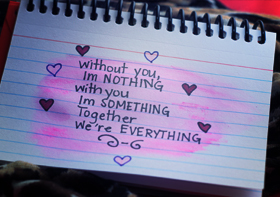 Without you,
Im NOTHING
with you
Im SOMETHING
Together
We're EVERYTHING